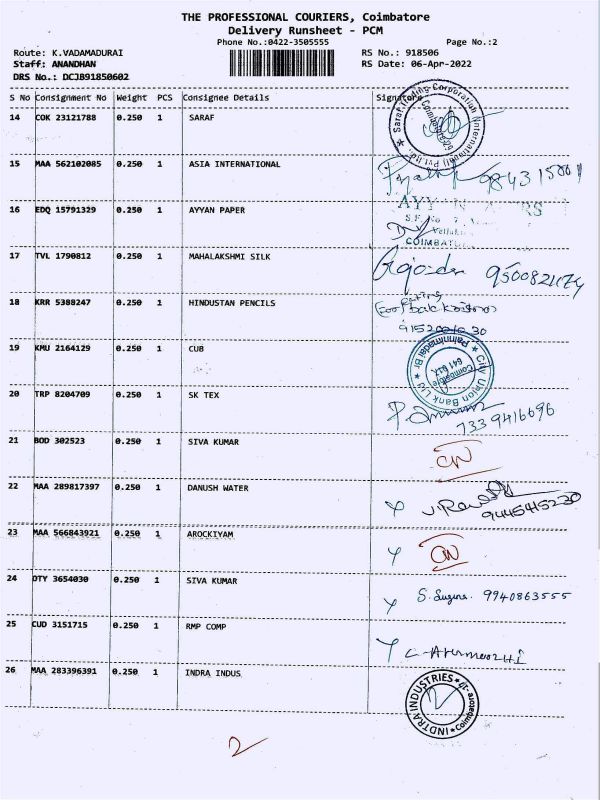 THE PROFESSIONAL COURIERS, Coimbatore
Delivery Runsheet - PCM
Phone No.:0422-3505555
Page No.:2
Route: K.VADAMADURAI
RS No.: 918506
Staff: ANANDHAN
RS Date: 06-Apr-2022
DRS No.: DCJB91850602
S No Consignment No Weight PCS Consignee Details Signature
14 COK 23121788 0.250 1 SARAF
Saraf Trading Corporation (International) Pvt.Ltd.
15 MAA 562102085 0.250 1 ASIA INTERNATIONAL
16 EDQ 15791329 0.250 1 AYYAN PAPER
17 TVL 1790812 0.250 1 MAHALAKSHMI SILK
9500821174
18 KRR 5388247 0.250 1 HINDUSTAN PENCILS
19 KMU 2164129 0.250 1 CUB
City Union Bank Ltd
Coimbatore
20 TRP 8204709 0.250 1 SK TEX
7339416696
21 BOD 302523 0.250 1 SIVA KUMAR
22 MAA 289817397 0.250 1 DANUSH WATER
9445415230
23 MAA 566843921 0.250 1 AROCKIYAM
24 OTY 3654030 0.250 1 SIVA KUMAR
9940863555
25 CUD 3151715 0.250 1 RMP COMP
26 MAA 283396391 0.250 1 INDRA INDUS
INDTRA INDUSTRIES
2